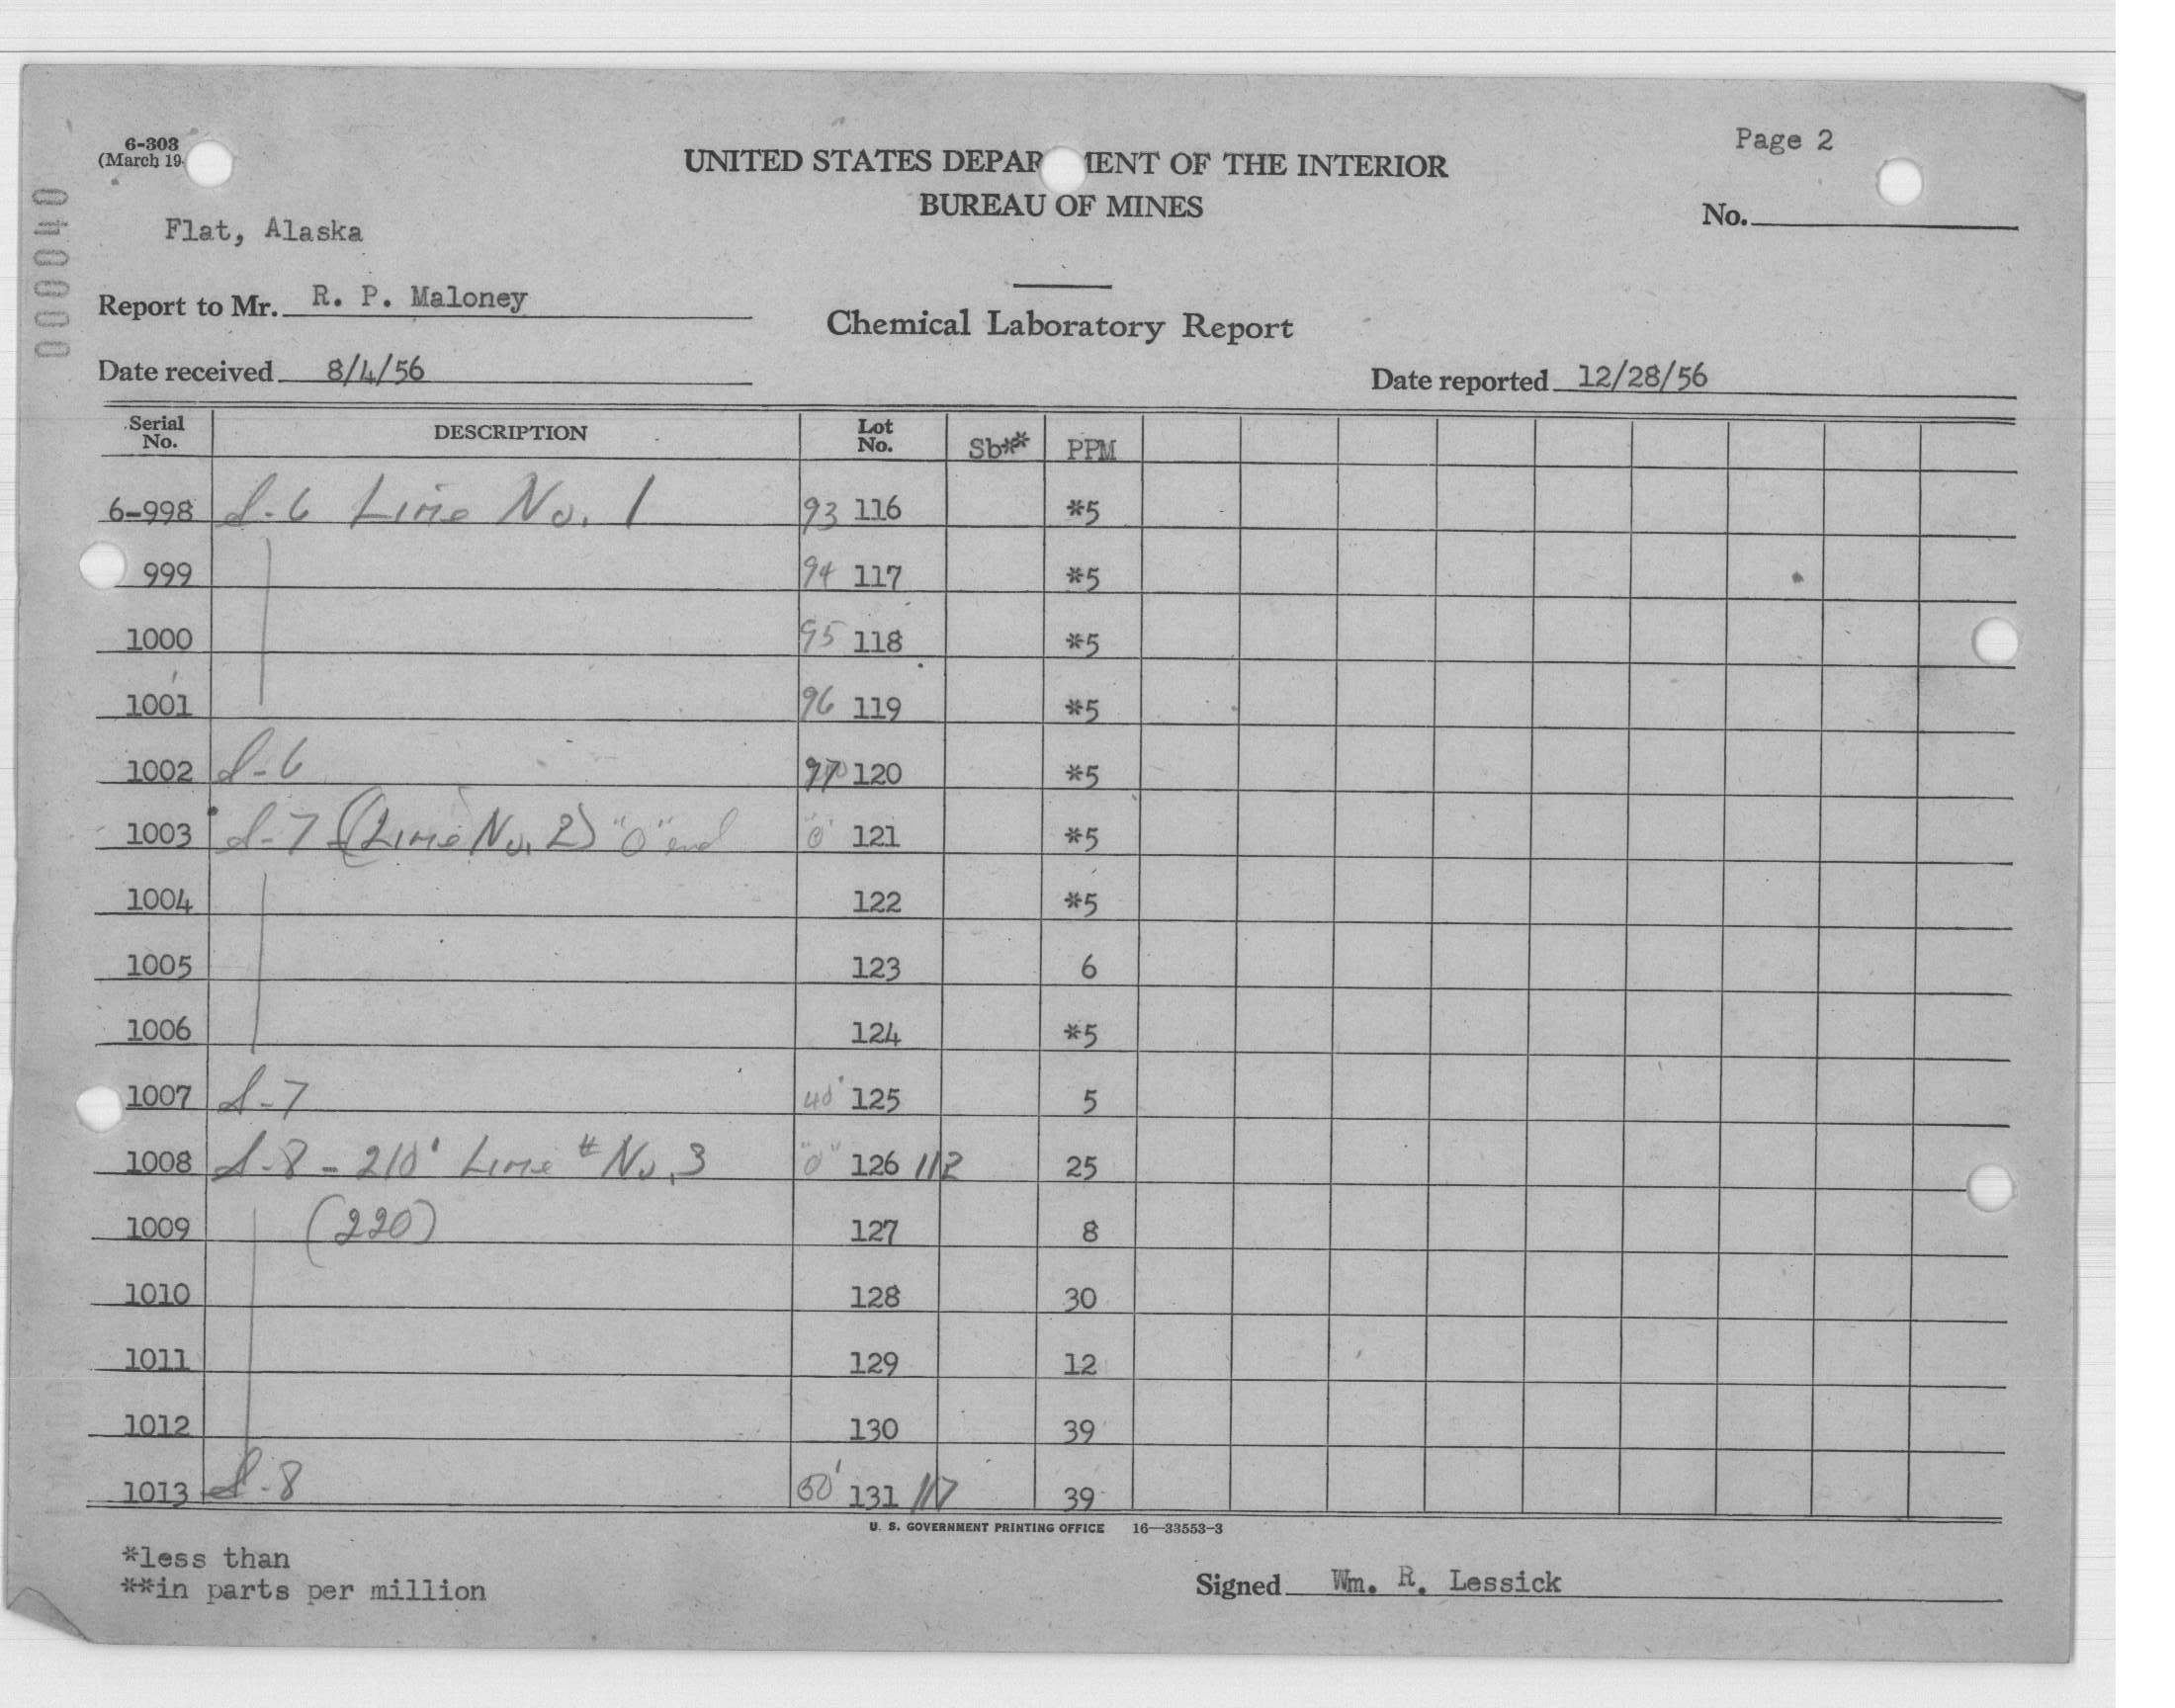 Page 2
6-303
(March 19
UNITED STATES DEPAR MENT OF THE INTERIOR
BUREAU OF MINES
No.
040000
Flat, Alaska
Report to Mr. R. P. Maloney
Chemical Laboratory Report
Date received 8/4/56
Date reported 12/28/56
Serial No. DESCRIPTION Lot No. Sb** PPM
6-998 S-6 Line No. 1 93 116 *5
999 94 117 *5
1000 95 118 *5
1001 96 119 *5
1002 S-6 97 120 *5
1003 S-7 (Line No. 2) "0" end "0" 121 *5
1004 122 *5
1005 123 6
1006 124 *5
1007 S-7 40' 125 5
1008 S-8 - 210' Line # No. 3 "0" 126 112 25
1009 (220) 127 8
1010 128 30
1011 129 12
1012 130 39
1013 S-8 131 117 39
U. S. GOVERNMENT PRINTING OFFICE 16—33553-3
*less than
**in parts per million
Signed Wm. R. Lessick